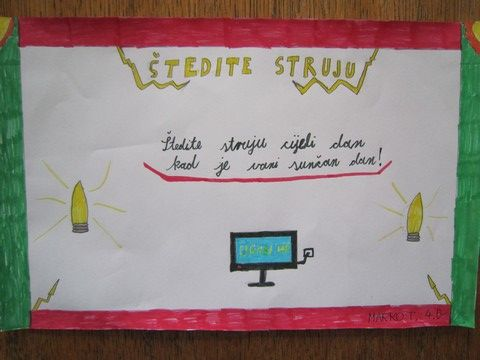 ŠTEDITE STRUJU
Štedite struju cijeli dan
kad je vani sunčan dan!
MARKO T., 4.B